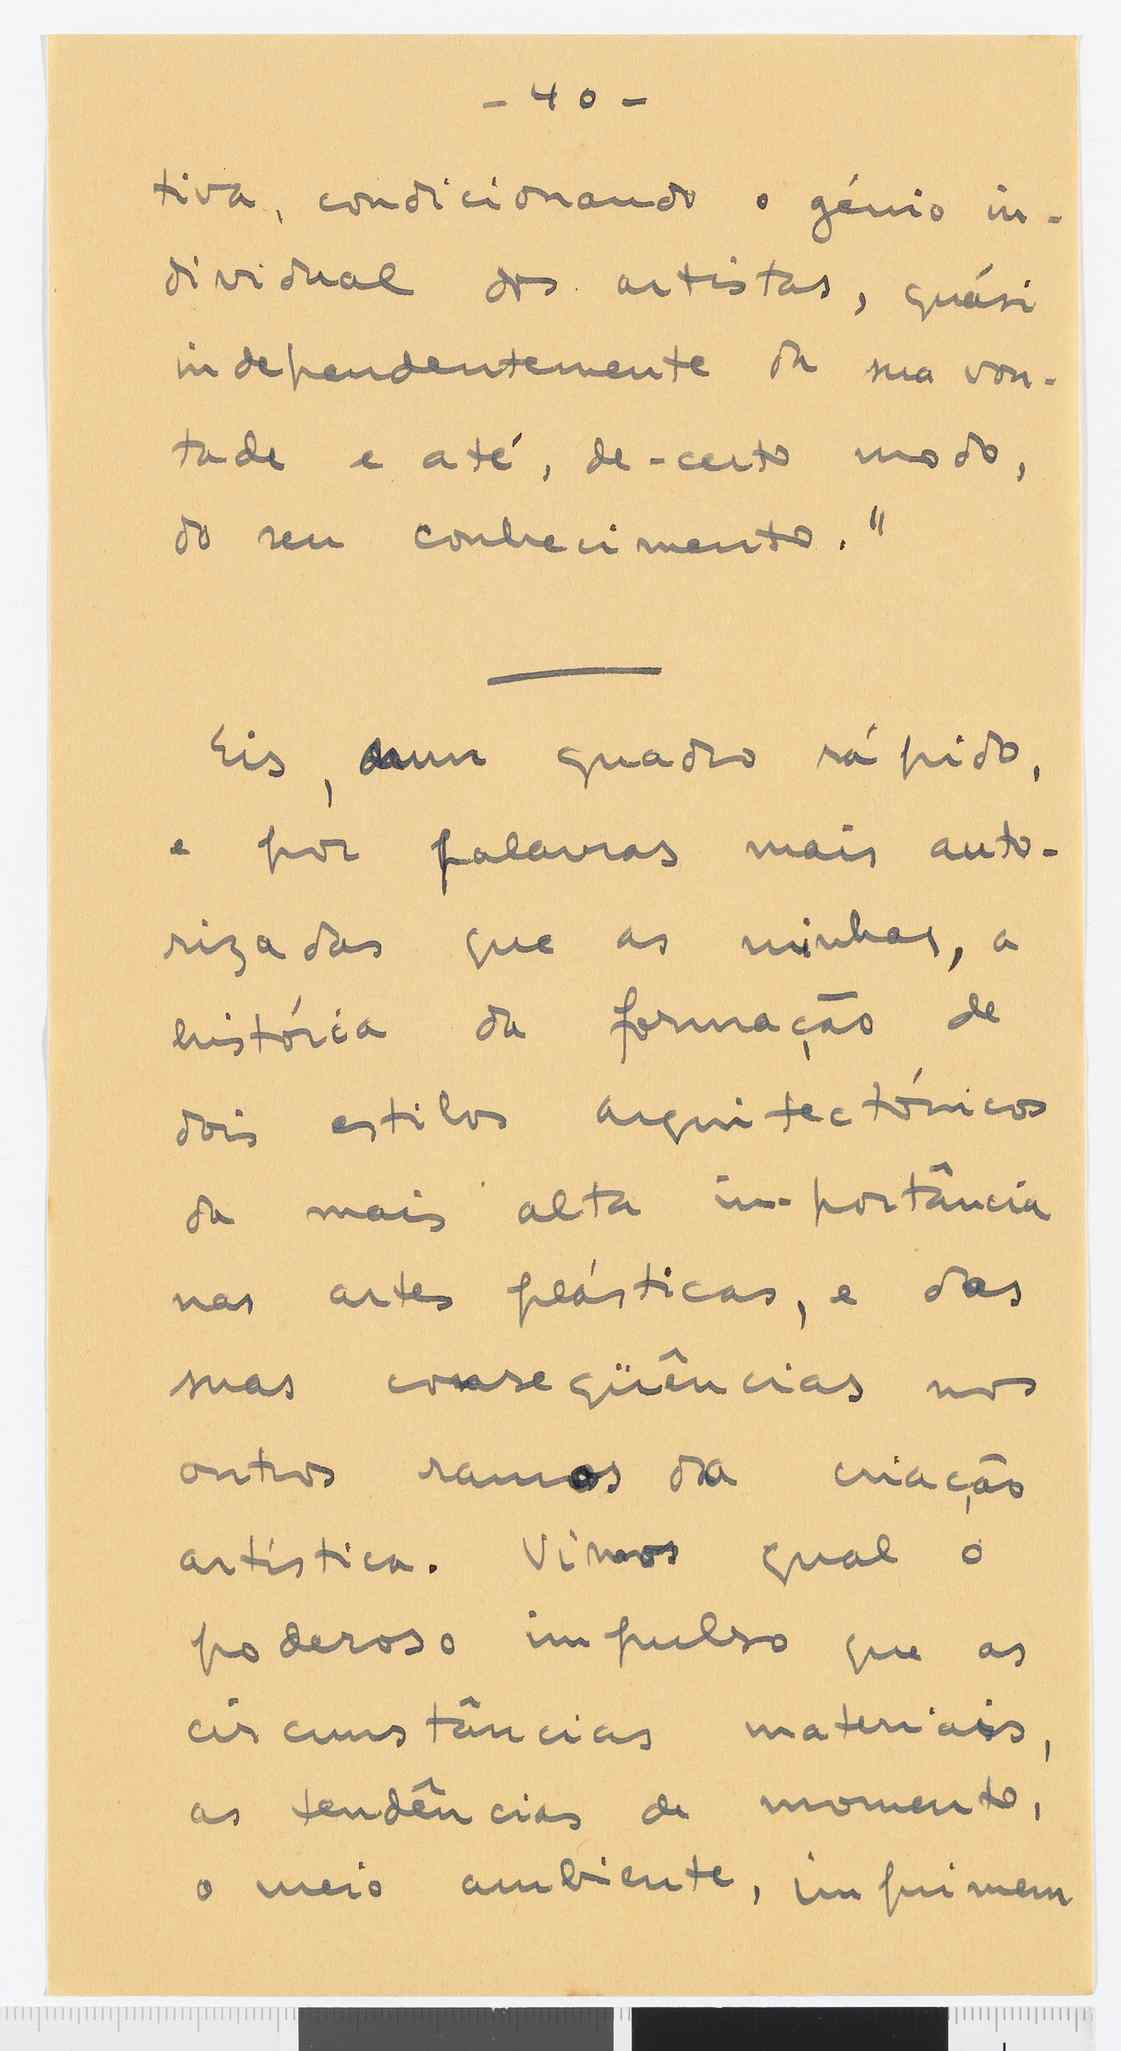 - 40 -
tiva, condicionando o génio in-
dividual dos artistas, quási
independentemente da sua von-
tade e até, de-certo modo,
do seu conhecimento."
Eis, num quadro rápido,
e por palavras mais auto-
rizadas que as minhas, a
história da formação de
dois estilos arquitectónicos
da mais alta importância
nas artes plásticas, e das
suas conseqüências nos
outros ramos da criação
artística. Vimos qual o
poderoso impulso que as
circunstâncias materiais,
as tendências de momento,
o meio ambiente, imprimem